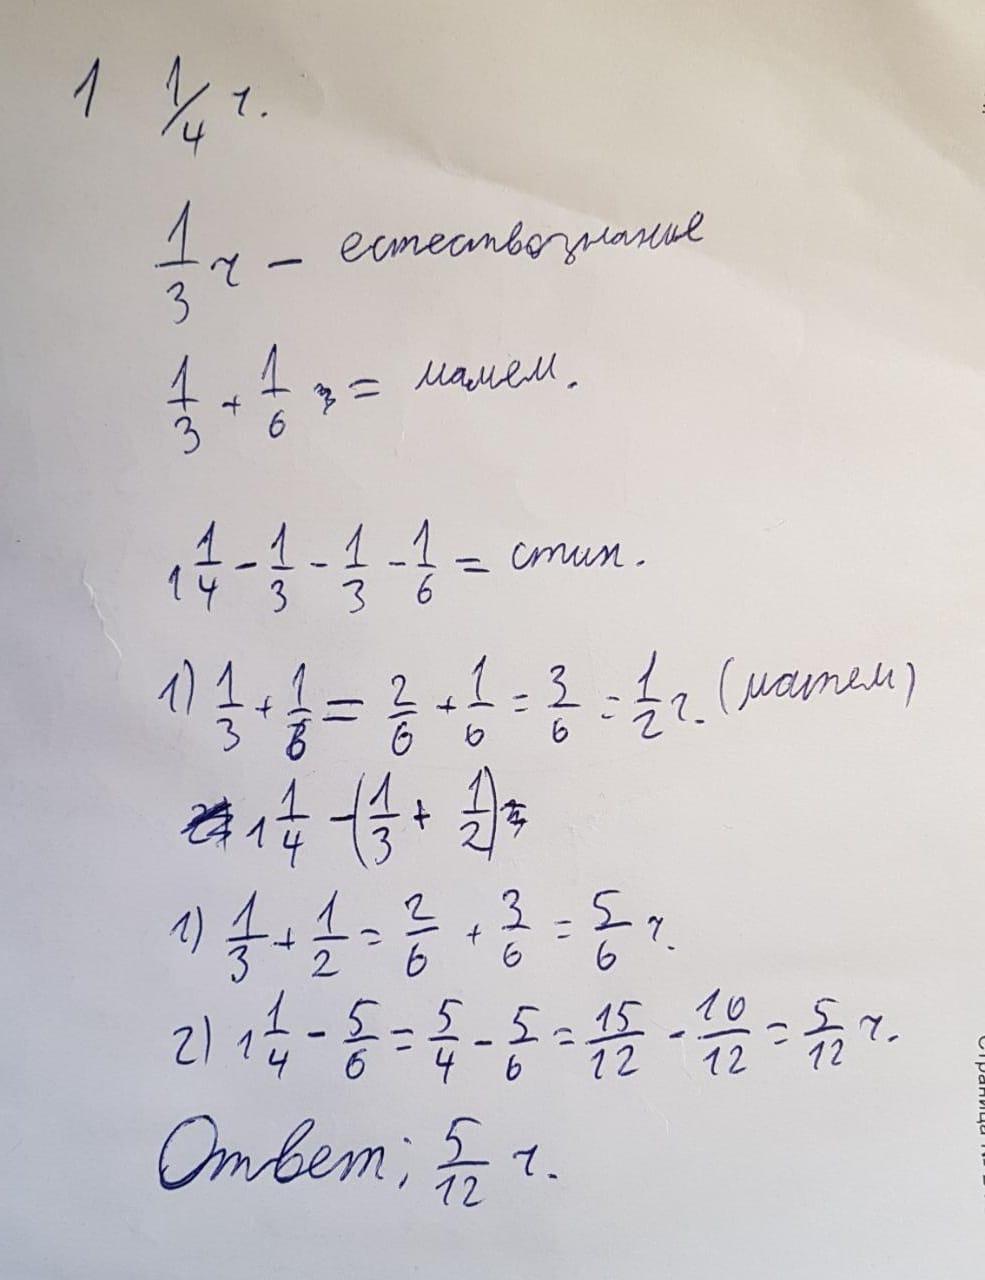 1 1/4 ч.
1/3 ч – естествознание
1/3 + 1/6 = матем.
1 1/4 - 1/3 - 1/3 - 1/6 = стих.
1) 1/3 + 1/6 = 2/6 + 1/6 = 3/6 = 1/2 ч. (матем)
1 1/4 - (1/3 + 1/2) =
1) 1/3 + 1/2 = 2/6 + 3/6 = 5/6 ч.
2) 1 1/4 - 5/6 = 5/4 - 5/6 = 15/12 - 10/12 = 5/12 ч.
Ответ: 5/12 ч.